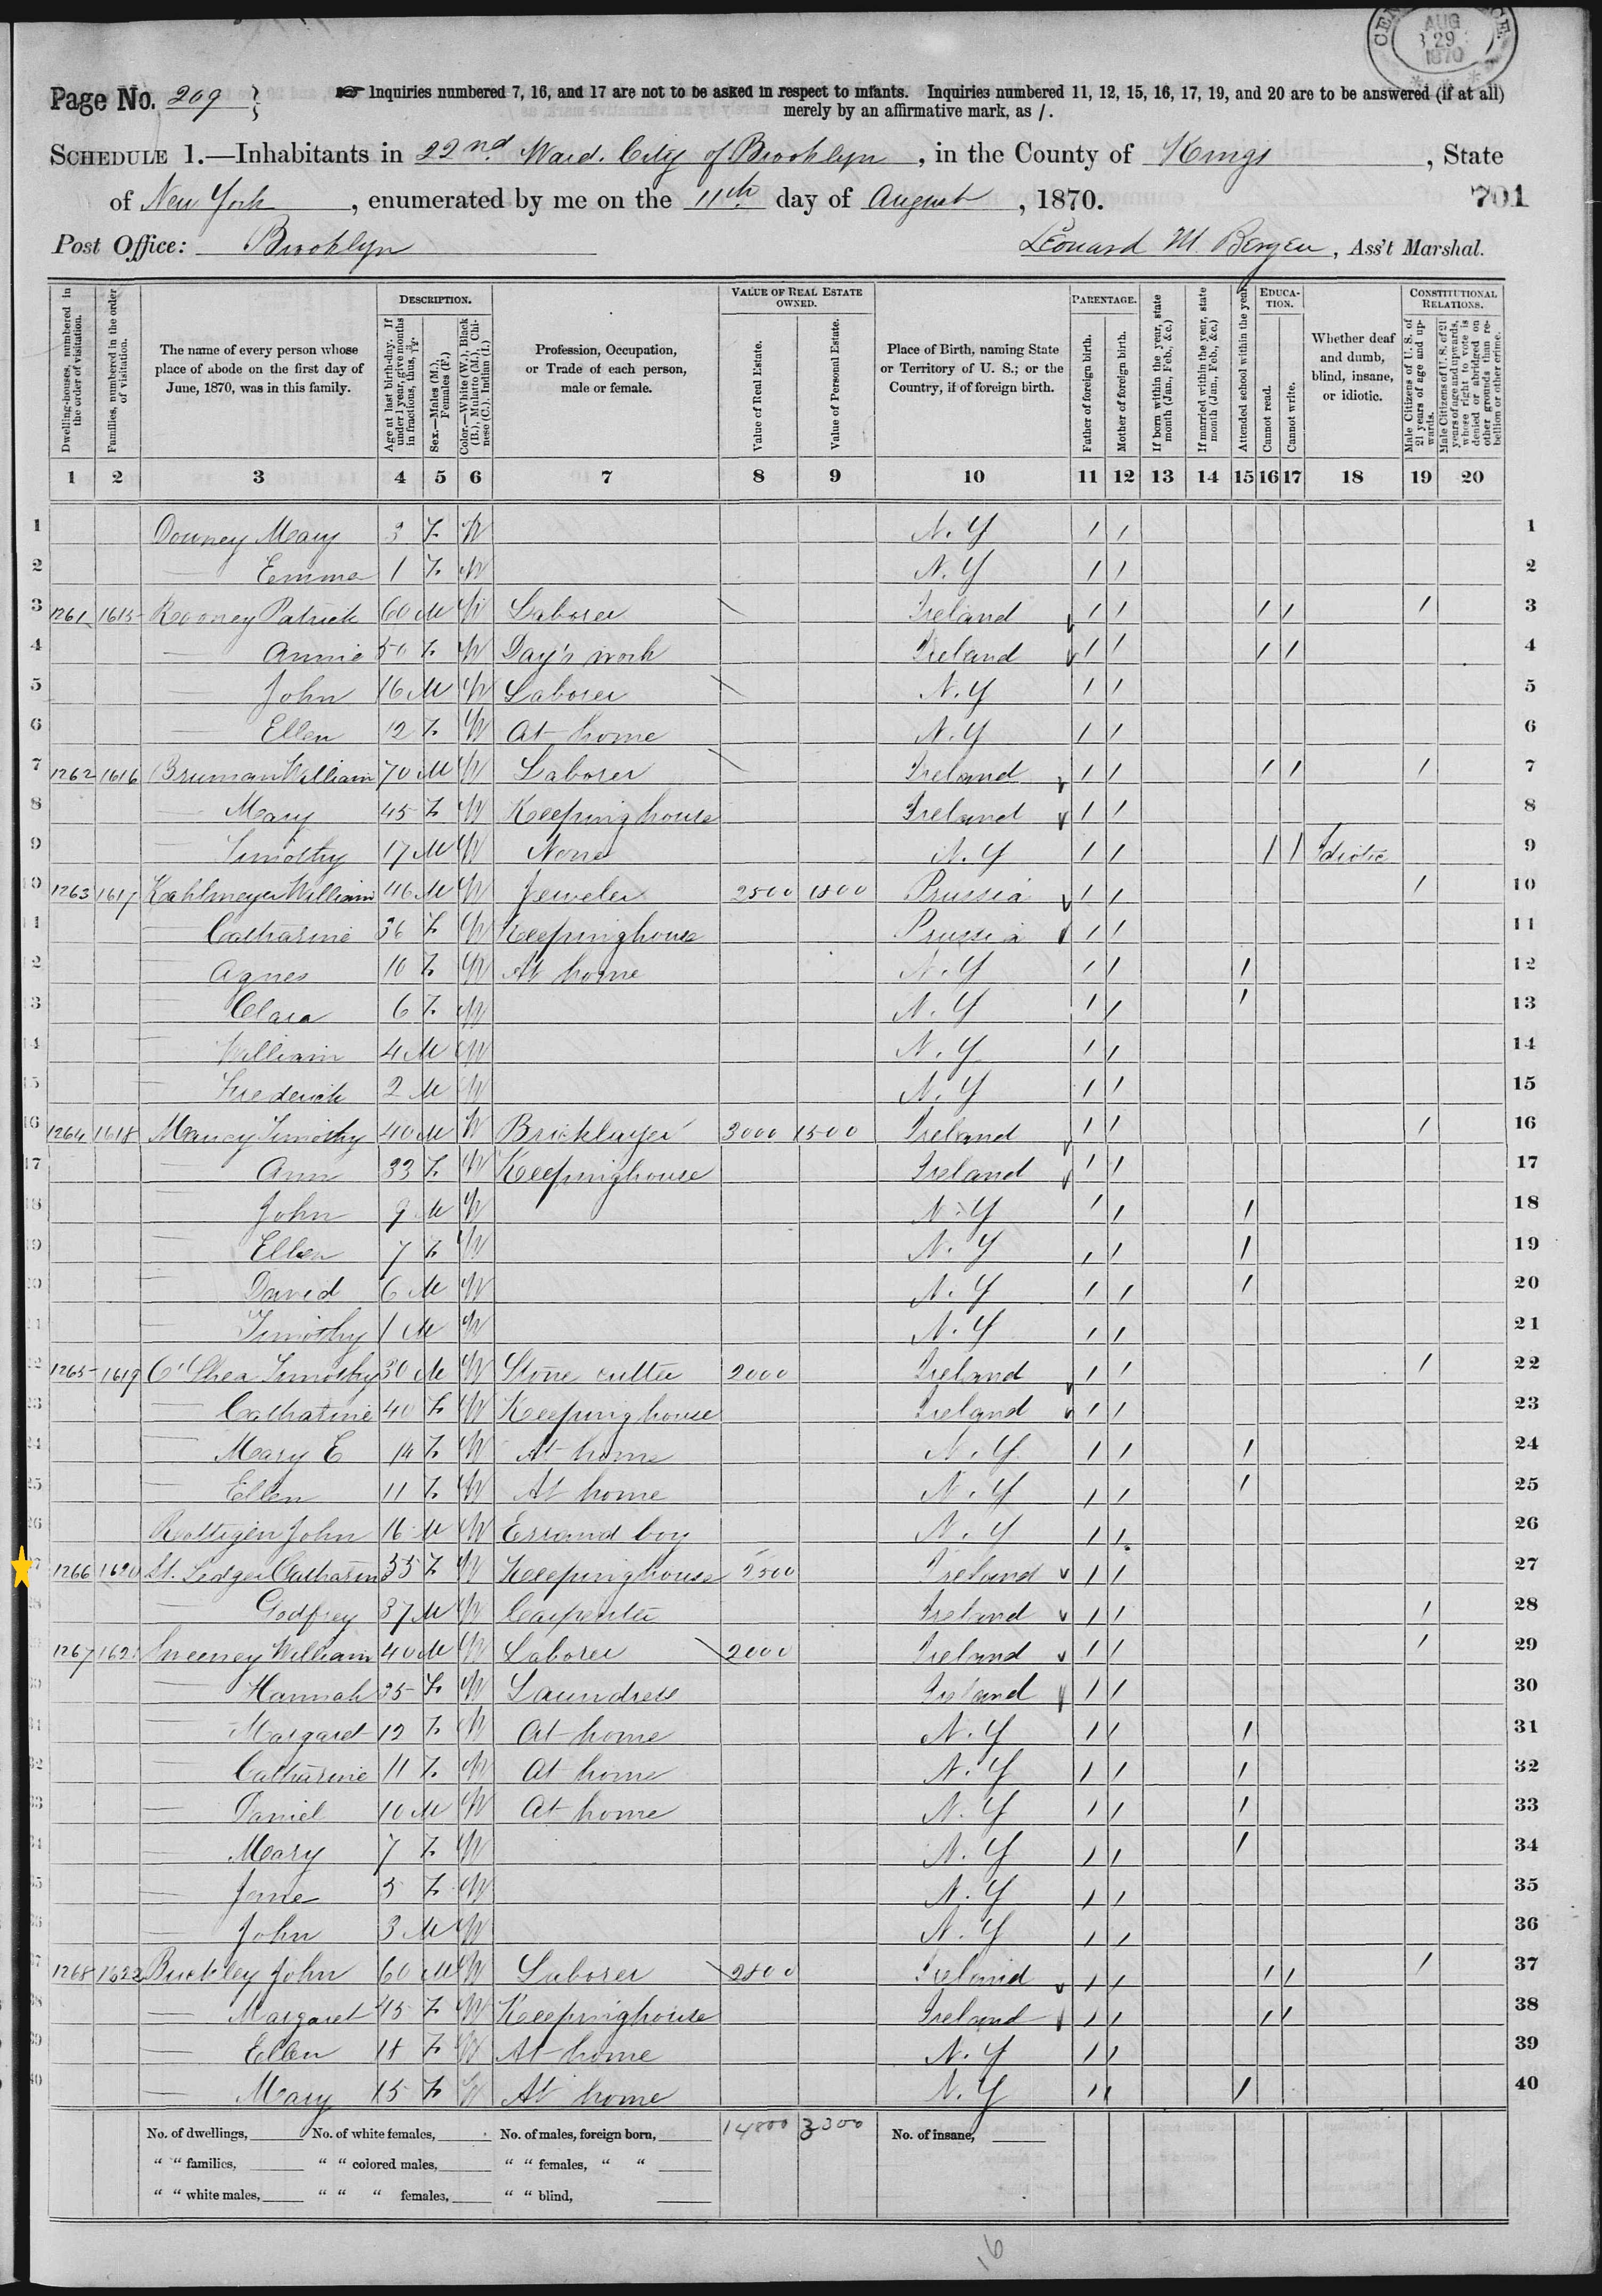 CENSUS OFFICE. AUG 29 1870
Page No. 209 }
☞ Inquiries numbered 7, 16, and 17 are not to be asked in respect to infants. Inquiries numbered 11, 12, 15, 16, 17, 19, and 20 are to be answered (if at all)
merely by an affirmative mark, as /.
SCHEDULE 1.—Inhabitants in 22nd Ward. City of Brooklyn, in the County of Kings, State
of New York, enumerated by me on the 11th day of August, 1870. 701
Post Office: Brooklyn Leonard M. Bergen, Ass't Marshal.
Dwelling-houses, numbered in the order of visitation.
Families, numbered in the order of visitation.
The name of every person whose place of abode on the first day of June, 1870, was in this family.
DESCRIPTION.
Age at last birth-day. If under 1 year, give months in fractions, thus, 3/12.
Sex.—Males (M.), Females (F.)
Color.—White (W.), Black (B.), Mulatto (M.), Chinese (C.), Indian (I.)
Profession, Occupation, or Trade of each person, male or female.
VALUE OF REAL ESTATE OWNED.
Value of Real Estate.
Value of Personal Estate.
Place of Birth, naming State or Territory of U. S.; or the Country, if of foreign birth.
PARENTAGE.
Father of foreign birth.
Mother of foreign birth.
If born within the year, state month (Jan., Feb., &c.)
If married within the year, state month (Jan., Feb., &c.)
Attended school within the year.
EDUCATION.
Cannot read.
Cannot write.
Whether deaf and dumb, blind, insane, or idiotic.
CONSTITUTIONAL RELATIONS.
Male Citizens of U. S. of 21 years of age and upwards.
Male Citizens of U. S. of 21 years of age and upwards, whose right to vote is denied or abridged on other grounds than rebellion or other crime.
1 2 3 4 5 6 7 8 9 10 11 12 13 14 15 16 17 18 19 20
1 Downey Mary 3 F W N.Y / / 1
2 — Emma 1 F W N.Y / / 2
3 1261 1615 Rooney Patrick 60 M W Laborer Ireland / / / / / 3
4 — Annie 50 F W Day's work Ireland / / / / 4
5 — John 16 M W Laborer N.Y / / 5
6 — Ellen 12 F W At home N.Y / / 6
7 1262 1616 Bruman William 70 M W Laborer Ireland / / / / / 7
8 — Mary 45 F W Keeping house Ireland / / 8
9 — Timothy 17 M W None N.Y / / / / Idiotic 9
10 1263 1617 Kahlmeyer William 46 M W Jeweler 2500 1800 Prussia / / / 10
11 — Catharine 36 F W Keeping house Prussia / / 11
12 — Agnes 10 F W At home N.Y / / / 12
13 — Clara 6 F W N.Y / / / 13
14 — William 4 M W N.Y / / 14
15 — Frederick 2 M W N.Y / / 15
16 1264 1618 Mancy Timothy 40 M W Bricklayer 3000 1500 Ireland / / / 16
17 — Ann 33 F W Keeping house Ireland / / 17
18 — John 9 M W N.Y / / / 18
19 — Ellen 7 F W N.Y / / / 19
20 — David 6 M W N.Y / / / 20
21 — Timothy 1 M W N.Y / / 21
22 1265 1619 O'Shea Timothy 30 M W Stone cutter 2000 Ireland / / / 22
23 — Catharine 40 F W Keeping house Ireland / / 23
24 — Mary E 14 F W At home N.Y / / / 24
25 — Ellen 11 F W At home N.Y / / / 25
26 Rottigen John 16 M W Errand boy N.Y / / 26
27 1266 1620 St. Ledger Catharine 35 F W Keeping house 2500 Ireland / / 27
28 — Godfrey 37 M W Carpenter Ireland / / / 28
29 1267 1621 Sweeney William 40 M W Laborer 2000 Ireland / / / 29
30 — Hannah 35 F W Laundress Ireland / / 30
31 — Margaret 12 F W At home N.Y / / / 31
32 — Catharine 11 F W At home N.Y / / / 32
33 — Daniel 10 M W At home N.Y / / / 33
34 — Mary 7 F W N.Y / / / 34
35 — Jane 5 F W N.Y / / 35
36 — John 3 M W N.Y / / 36
37 1268 1622 Buckley John 60 M W Laborer 2800 Ireland / / / / / 37
38 — Margaret 45 F W Keeping house Ireland / / / / 38
39 — Ellen 18 F W At home N.Y / / 39
40 — Mary 15 F W At home N.Y / / / 40
No. of dwellings, No. of white females, No. of males, foreign born, 14800 3300 No. of insane,
" " families, " " colored males, " " females, " "
" " white males, " " " females, " " blind,
16